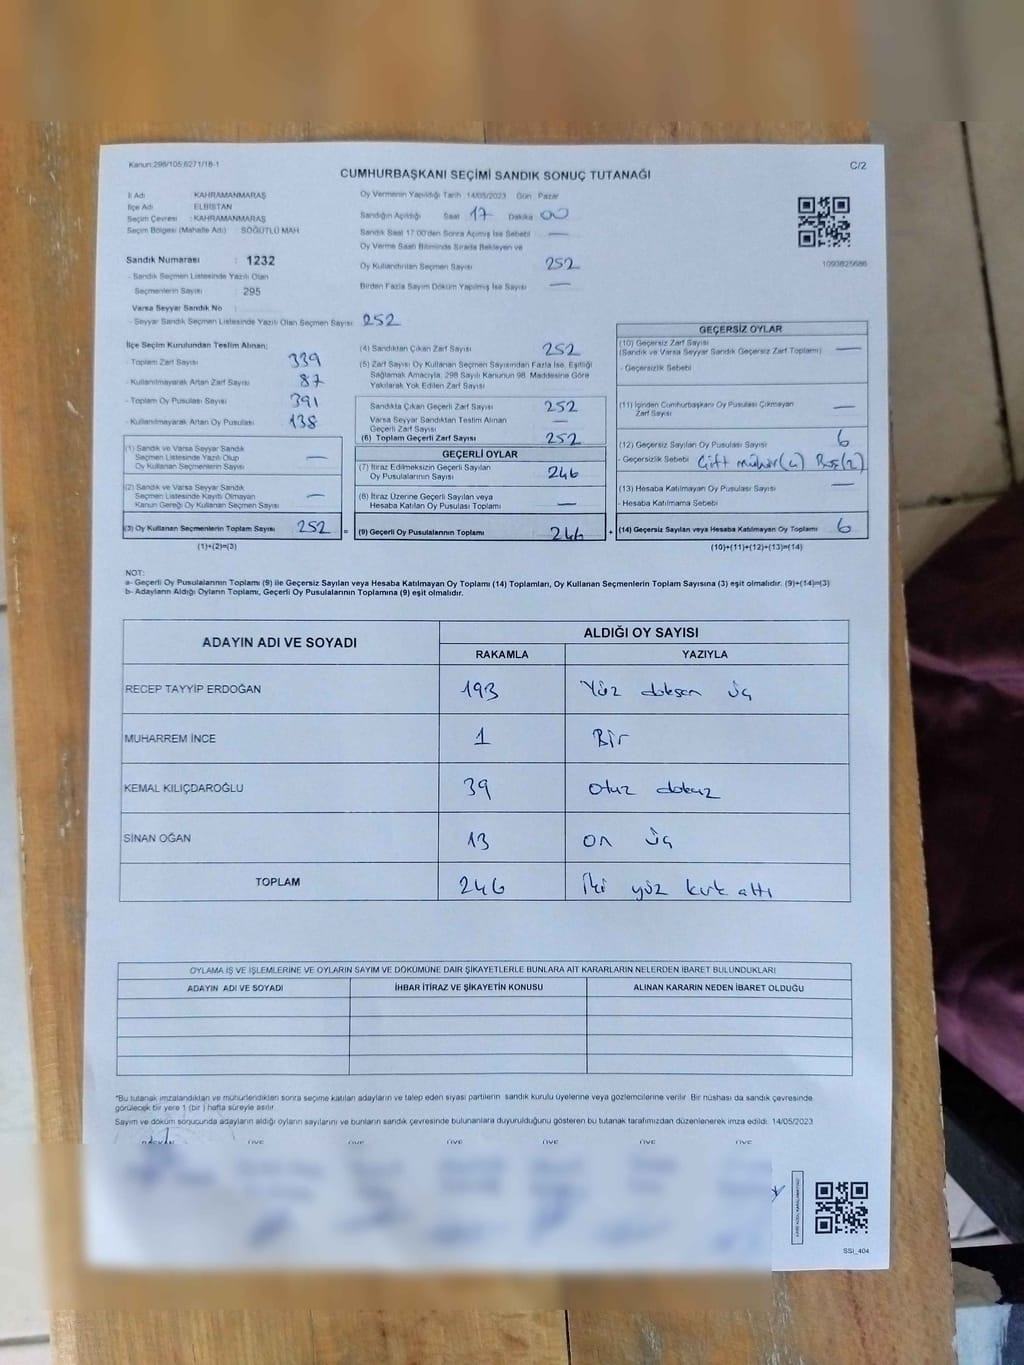 Kanun:298/105,6271/18-1
C/2
CUMHURBAŞKANI SEÇİMİ SANDIK SONUÇ TUTANAĞI
İl Adı : KAHRAMANMARAŞ
İlçe Adı : ELBİSTAN
Seçim Çevresi : KAHRAMANMARAŞ
Seçim Bölgesi (Mahalle Adı) : SÖĞÜTLÜ MAH
Sandık Numarası : 1232
- Sandık Seçmen Listesinde Yazılı Olan
Seçmenlerin Sayısı : 295
Varsa Seyyar Sandık No :
- Seyyar Sandık Seçmen Listesinde Yazılı Olan Seçmen Sayısı : 252
Oy Vermenin Yapıldığı Tarih 14/05/2023 Gün Pazar
Sandığın Açıldığı Saat 17 Dakika 00
Sandık Saat 17:00'den Sonra Açılmış İse Sebebi —
Oy Verme Saati Bitiminde Sırada Bekleyen ve
Oy Kullandırılan Seçmen Sayısı 252
Birden Fazla Sayım Döküm Yapılmış İse Sayısı —
1093825686
İlçe Seçim Kurulundan Teslim Alınan;
- Toplam Zarf Sayısı 339
- Kullanılmayarak Artan Zarf Sayısı 87
- Toplam Oy Pusulası Sayısı 391
- Kullanılmayarak Artan Oy Pusulası 138
(1) Sandık ve Varsa Seyyar Sandık
Seçmen Listesinde Yazılı Olup
Oy Kullanan Seçmenlerin Sayısı —
(2) Sandık ve Varsa Seyyar Sandık
Seçmen Listesinde Kayıtlı Olmayan
Kanun Gereği Oy Kullanan Seçmen Sayısı —
(3) Oy Kullanan Seçmenlerin Toplam Sayısı 252 =
(1)+(2)=(3)
(4) Sandıktan Çıkan Zarf Sayısı 252
(5) Zarf Sayısı Oy Kullanan Seçmen Sayısından Fazla İse, Eşitliği
Sağlamak Amacıyla, 298 Sayılı Kanunun 98. Maddesine Göre
Yakılarak Yok Edilen Zarf Sayısı
Sandıkta Çıkan Geçerli Zarf Sayısı 252
Varsa Seyyar Sandıktan Teslim Alınan
Geçerli Zarf Sayısı —
(6) Toplam Geçerli Zarf Sayısı 252
GEÇERLİ OYLAR
(7) İtiraz Edilmeksizin Geçerli Sayılan
Oy Pusulalarının Sayısı 246
(8) İtiraz Üzerine Geçerli Sayılan veya
Hesaba Katılan Oy Pusulası Toplamı —
(9) Geçerli Oy Pusulalarının Toplamı 246 +
GEÇERSİZ OYLAR
(10) Geçersiz Zarf Sayısı
(Sandık ve Varsa Seyyar Sandık Geçersiz Zarf Toplamı) —
- Geçersizlik Sebebi
(11) İçinden Cumhurbaşkanı Oy Pusulası Çıkmayan
Zarf Sayısı —
(12) Geçersiz Sayılan Oy Pusulası Sayısı 6
- Geçersizlik Sebebi Çift mühür(4) Boş(2)
(13) Hesaba Katılmayan Oy Pusulası Sayısı —
- Hesaba Katılmama Sebebi
(14) Geçersiz Sayılan veya Hesaba Katılmayan Oy Toplamı 6
(10)+(11)+(12)+(13)=(14)
NOT:
a- Geçerli Oy Pusulalarının Toplamı (9) ile Geçersiz Sayılan veya Hesaba Katılmayan Oy Toplamı (14) Toplamları, Oy Kullanan Seçmenlerin Toplam Sayısına (3) eşit olmalıdır. (9)+(14)=(3)
b- Adayların Aldığı Oyların Toplamı, Geçerli Oy Pusulalarının Toplamına (9) eşit olmalıdır.
ADAYIN ADI VE SOYADI
ALDIĞI OY SAYISI
RAKAMLA YAZIYLA
RECEP TAYYİP ERDOĞAN 193 Yüz doksan üç
MUHARREM İNCE 1 Bir
KEMAL KILIÇDAROĞLU 39 otuz dokuz
SİNAN OĞAN 13 on üç
TOPLAM 246 İki yüz kırk altı
OYLAMA İŞ VE İŞLEMLERİNE VE OYLARIN SAYIM VE DÖKÜMÜNE DAİR ŞİKAYETLERLE BUNLARA AİT KARARLARIN NELERDEN İBARET BULUNDUKLARI
ADAYIN ADI VE SOYADI İHBAR İTİRAZ VE ŞİKAYETİN KONUSU ALINAN KARARIN NEDEN İBARET OLDUĞU
*Bu tutanak imzalandıktan ve mühürlendikten sonra seçime katılan adayların ve talep eden siyasi partilerin sandık kurulu üyelerine veya gözlemcilerine verilir. Bir nüshası da sandık çevresinde
görülecek bir yere 1 (bir) hafta süreyle asılır.
Sayım ve döküm sonucunda adayların aldığı oyların sayılarını ve bunların sandık çevresinde bulunanlara duyurulduğunu gösteren bu tutanak tarafımızdan düzenlenerek imza edildi. 14/05/2023
ÜYE ÜYE ÜYE ÜYE ÜYE ÜYE
SSI_404